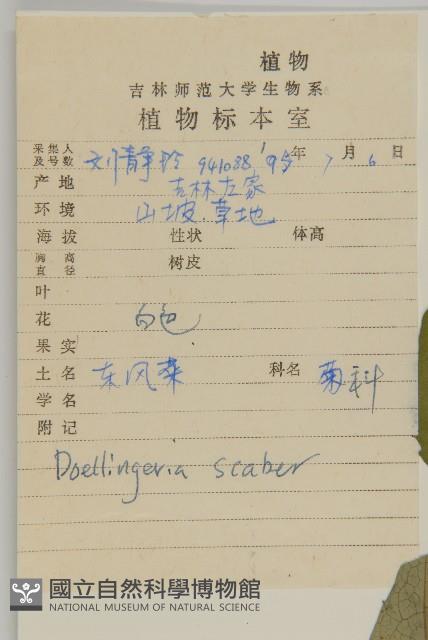 植物
吉林师范大学生物系
植物标本室
采集人及号数 刘静玲 941038 年 7 月 6 日
产地 吉林左家
环境 山坡.草地
海拔 性状 体高
胸高直径 树皮
叶
花 白色
果实
土名 东风菜 科名 菊科
学名
附记
Doellingeria scaber
國立自然科學博物館
NATIONAL MUSEUM OF NATURAL SCIENCE